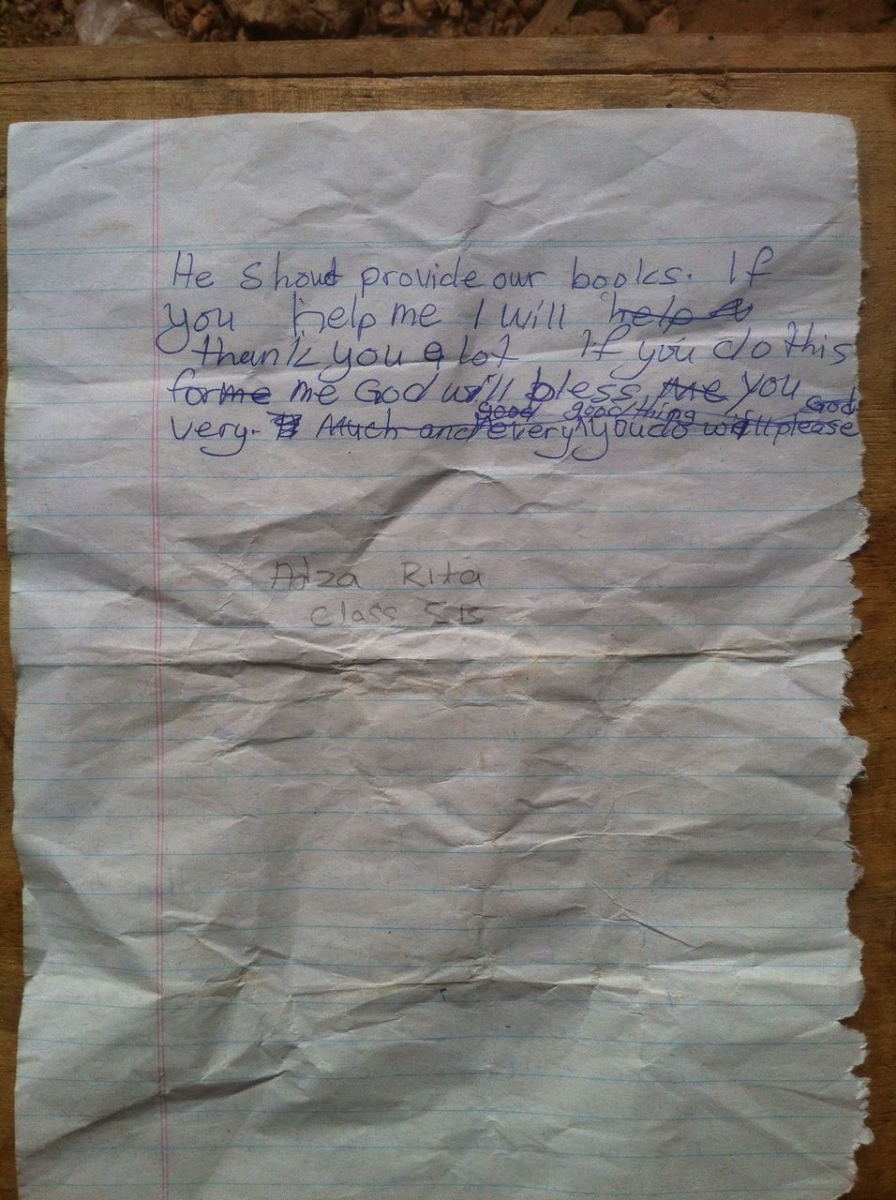 He shoud provide our books. If
you help me I will help
thank you a lot If you do this
for me me God will bless me you
good good thing if God
very. Much and every you do will please
Adza Rita
class 5B